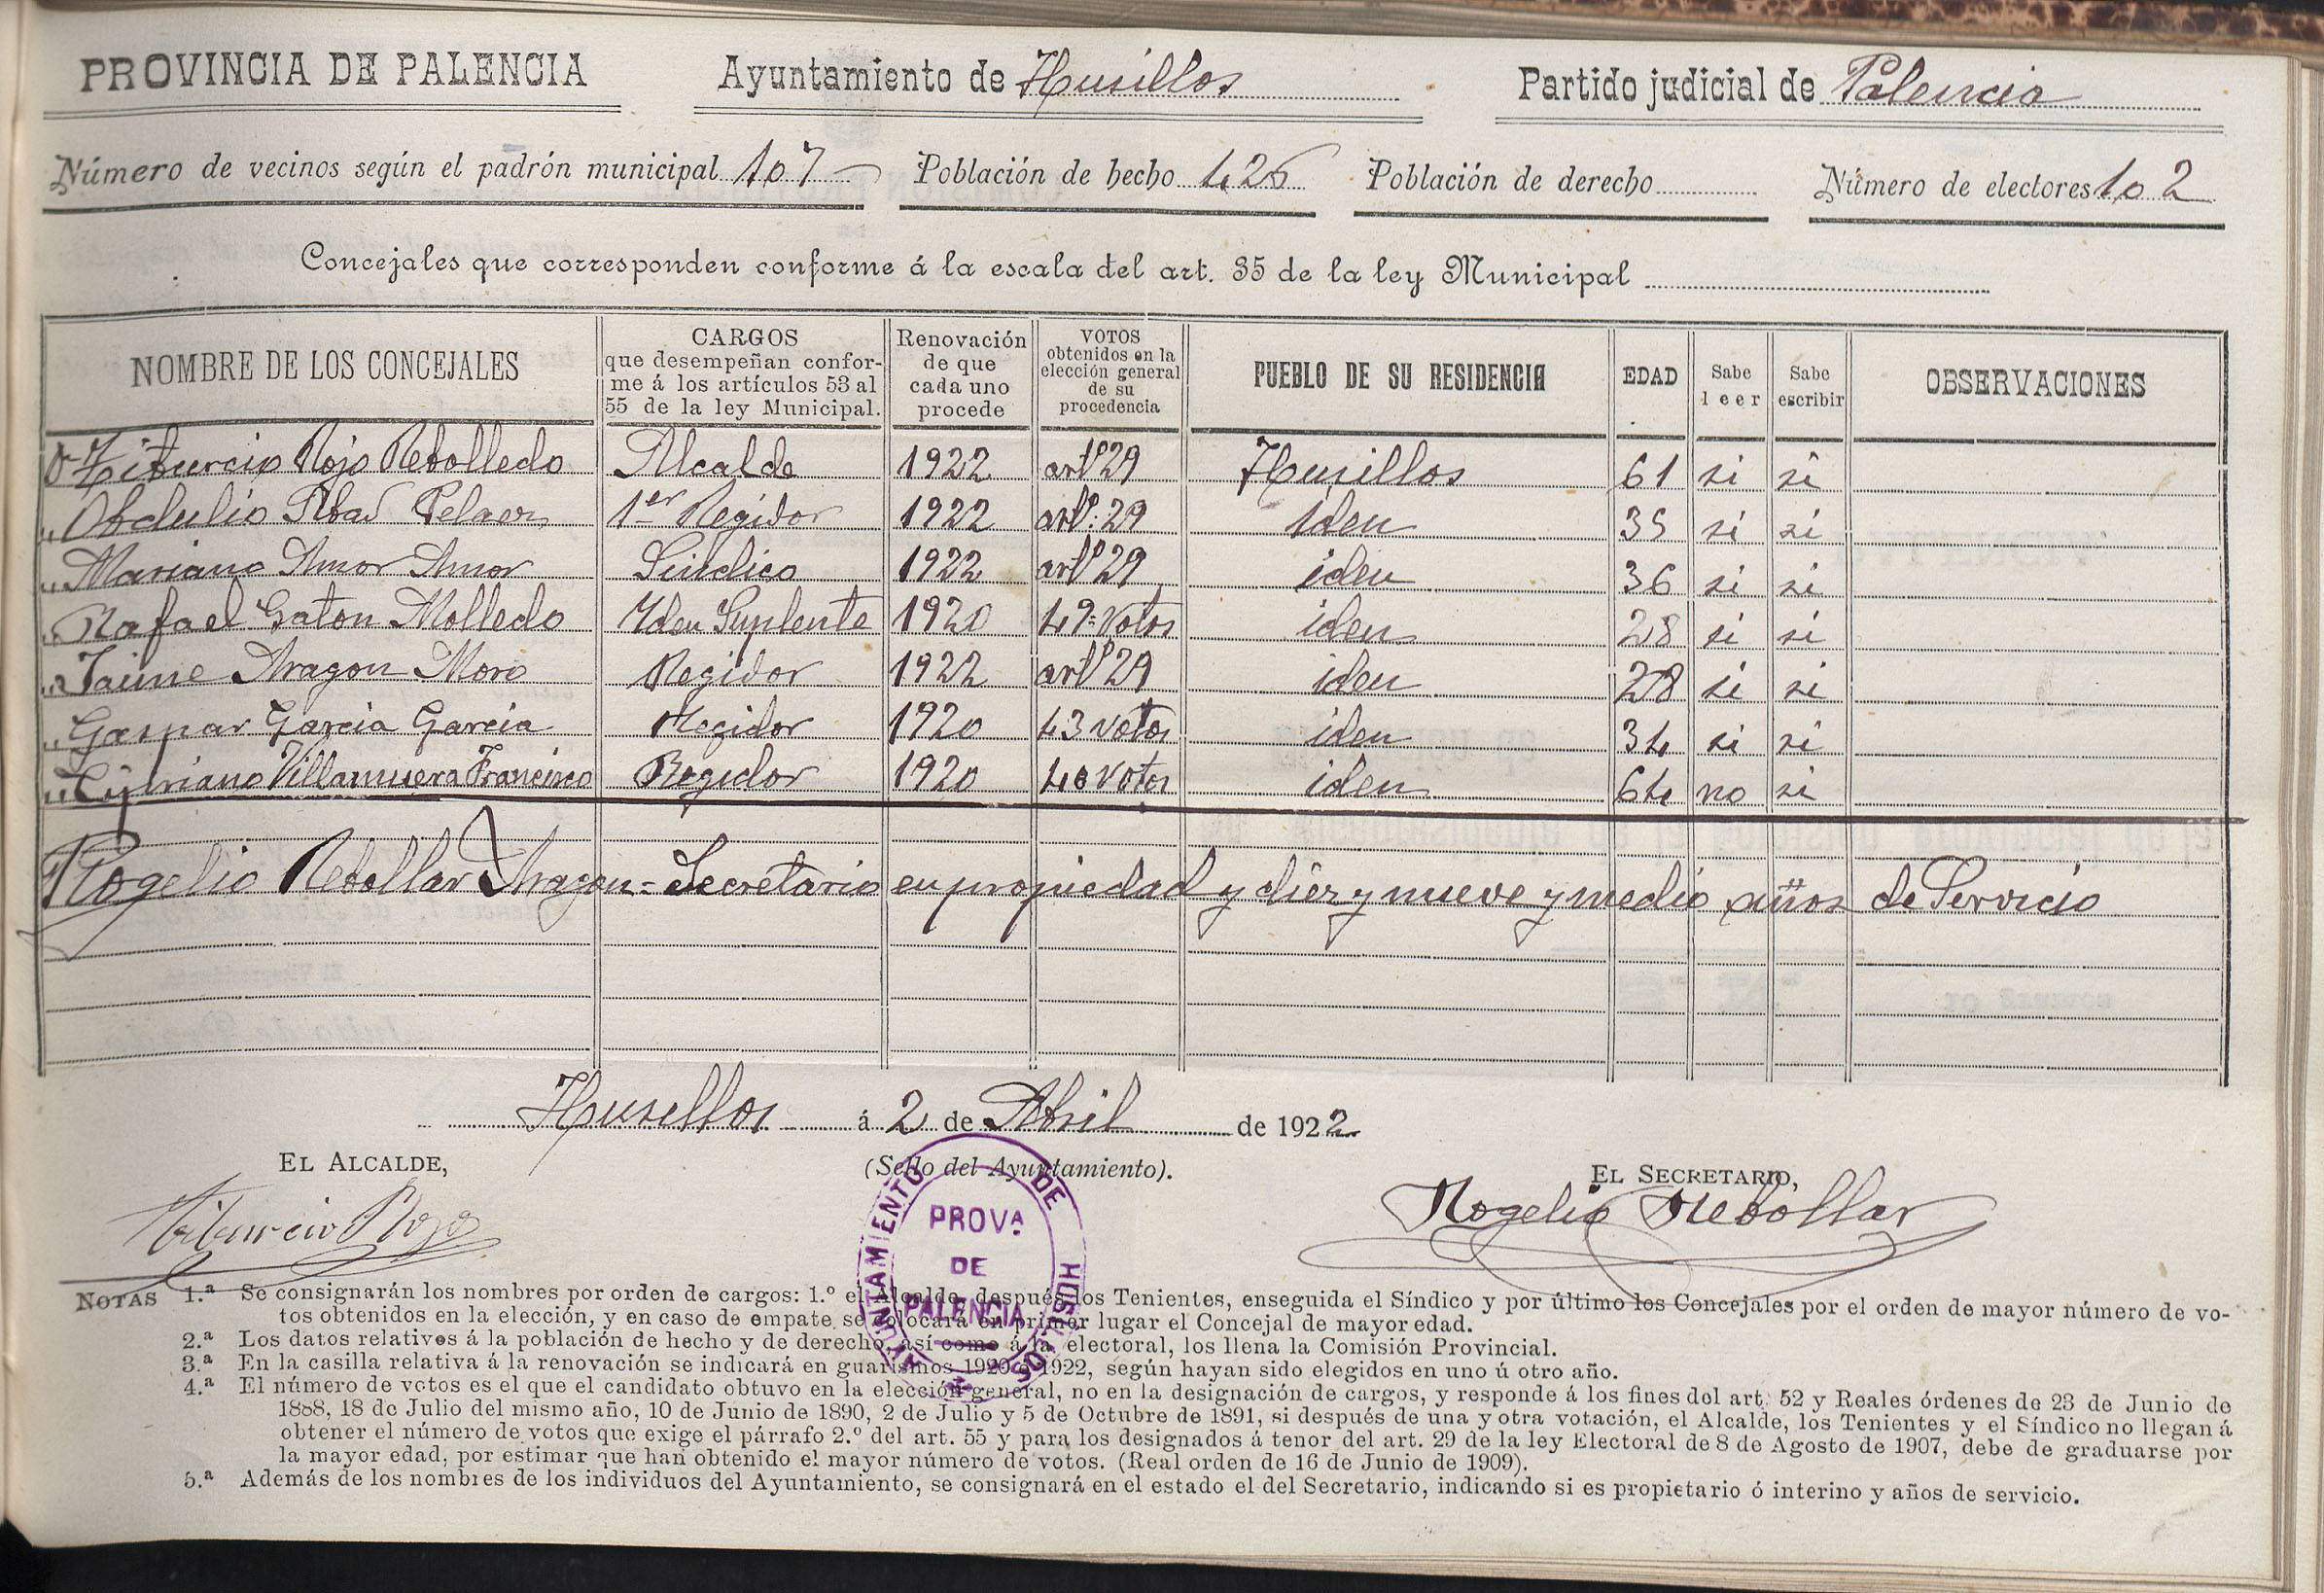 PROVINCIA DE PALENCIA Ayuntamiento de Husillos Partido judicial de Palencia
Número de vecinos según el padrón municipal 107 Población de hecho 426 Población de derecho Número de electores 102
Concejales que corresponden conforme á la escala del art. 35 de la ley Municipal
NOMBRE DE LOS CONCEJALES CARGOS que desempeñan conforme á los artículos 53 al 55 de la ley Municipal. Renovación de que cada uno procede VOTOS obtenidos en la elección general de su procedencia PUEBLO DE SU RESIDENCIA EDAD Sabe leer Sabe escribir OBSERVACIONES
Dn Tiburcio Rojo Rebolledo Alcalde 1922 artº 29 Husillos 61 si si
" Obdulio Abad Pelaez 1er Regidor 1922 artº 29 iden 35 si si
" Mariano Amor Amor Sindico 1922 artº 29 iden 36 si si
" Rafael Gaton Molledo Yden Suplente 1920 49 votos iden 28 si si
" Jaime Aragon Moro Regidor 1922 artº 29 iden 28 si si
" Gaspar Garcia Garcia Regidor 1920 43 votos iden 34 si si
" Cipriano Villamuera Francisco Regidor 1920 40 votos iden 64 no si
Rogelio Rebollar Aragon = Secretario en propiedad y diez y nueve y medio años de Servicio
Husillos á 2 de Abril de 1922
EL ALCALDE, (Sello del Ayuntamiento). EL SECRETARIO,
Tiburcio Rojo Rogelio Rebollar
AYUNTAMIENTO DE HUSILLOS
PROVA
DE
PALENCIA
NOTAS 1.ª Se consignarán los nombres por orden de cargos: 1.º el Alcalde, después los Tenientes, enseguida el Síndico y por último los Concejales por el orden de mayor número de vo-
tos obtenidos en la elección, y en caso de empate se colocará en primer lugar el Concejal de mayor edad.
2.ª Los datos relativos á la población de hecho y de derecho, así como á la electoral, los llena la Comisión Provincial.
3.ª En la casilla relativa á la renovación se indicará en guarismos 1920 ó 1922, según hayan sido elegidos en uno ú otro año.
4.ª El número de votos es el que el candidato obtuvo en la elección general, no en la designación de cargos, y responde á los fines del art. 52 y Reales órdenes de 23 de Junio de
1888, 18 de Julio del mismo año, 10 de Junio de 1890, 2 de Julio y 5 de Octubre de 1891, si después de una y otra votación, el Alcalde, los Tenientes y el Síndico no llegan á
obtener el número de votos que exige el párrafo 2.º del art. 55 y para los designados á tenor del art. 29 de la ley Electoral de 8 de Agosto de 1907, debe de graduarse por
la mayor edad, por estimar que han obtenido el mayor número de votos. (Real orden de 16 de Junio de 1909).
5.ª Además de los nombres de los individuos del Ayuntamiento, se consignará en el estado el del Secretario, indicando si es propietario ó interino y años de servicio.